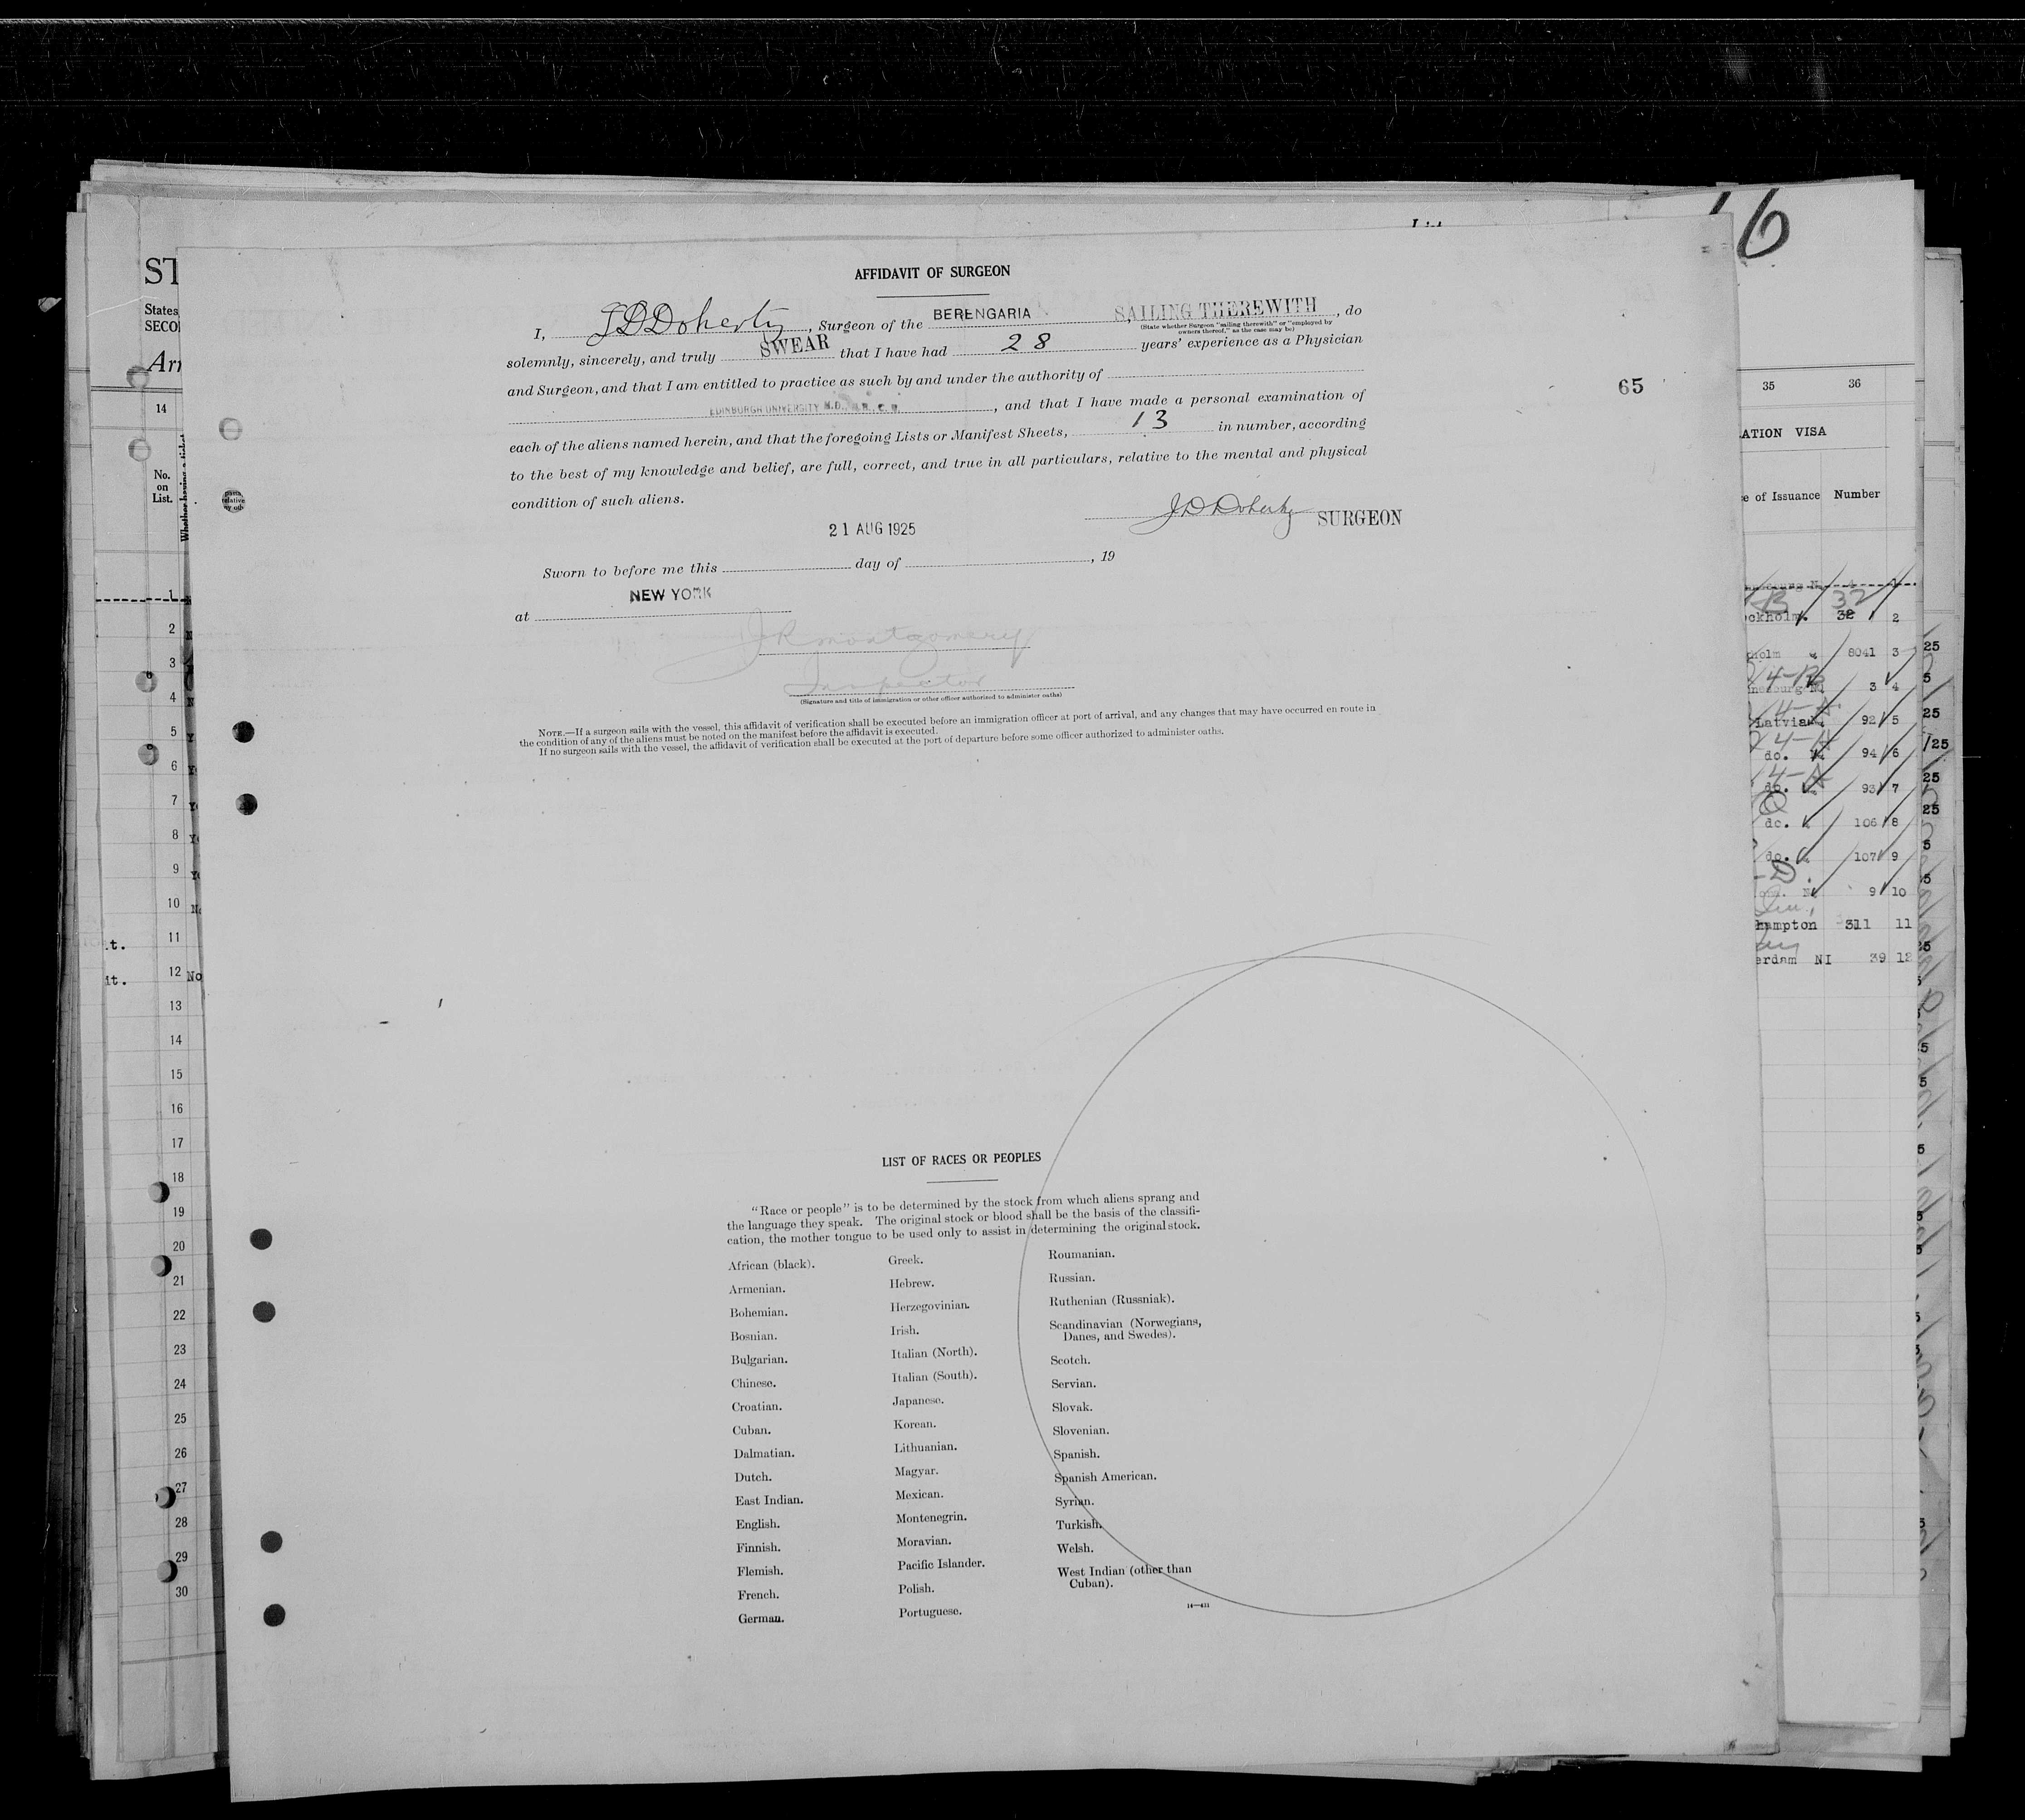 AFFIDAVIT OF SURGEON
I, J D Doherty, Surgeon of the BERENGARIA, SAILING THEREWITH, do
(State whether Surgeon "sailing therewith" or "employed by
owners thereof," as the case may be)
solemnly, sincerely, and truly SWEAR that I have had 28 years' experience as a Physician
and Surgeon, and that I am entitled to practice as such by and under the authority of
EDINBURGH UNIVERSITY M.D., , and that I have made a personal examination of
each of the aliens named herein, and that the foregoing Lists or Manifest Sheets, 13 in number, according
to the best of my knowledge and belief, are full, correct, and true in all particulars, relative to the mental and physical
condition of such aliens.
J D Doherty SURGEON
21 AUG 1925
Sworn to before me this day of , 19
at NEW YORK
J R Montgomery
Inspector
(Signature and title of immigration or other officer authorized to administer oaths)
NOTE.—If a surgeon sails with the vessel, this affidavit of verification shall be executed before an immigration officer at port of arrival, and any changes that may have occurred en route in
the condition of any of the aliens must be noted on the manifest before the affidavit is executed.
If no surgeon sails with the vessel, the affidavit of verification shall be executed at the port of departure before some officer authorized to administer oaths.
65
LIST OF RACES OR PEOPLES
"Race or people" is to be determined by the stock from which aliens sprang and
the language they speak. The original stock or blood shall be the basis of the classifi-
cation, the mother tongue to be used only to assist in determining the original stock.
African (black).
Armenian.
Bohemian.
Bosnian.
Bulgarian.
Chinese.
Croatian.
Cuban.
Dalmatian.
Dutch.
East Indian.
English.
Finnish.
Flemish.
French.
German.
Greek.
Hebrew.
Herzegovinian.
Irish.
Italian (North).
Italian (South).
Japanese.
Korean.
Lithuanian.
Magyar.
Mexican.
Montenegrin.
Moravian.
Pacific Islander.
Polish.
Portuguese.
Roumanian.
Russian.
Ruthenian (Russniak).
Scandinavian (Norwegians,
Danes, and Swedes).
Scotch.
Servian.
Slovak.
Slovenian.
Spanish.
Spanish American.
Syrian.
Turkish.
Welsh.
West Indian (other than
Cuban).
14—431
ST
States,
14
No.
on
List.
1
2
3
4
5
6
7
8
9
10
11
12 No
13
14
15
16
17
18
19
20
21
22
23
24
25
26
27
28
29
30
6
35 36
ATION VISA
of Issuance Number
32
32 2
8041 3
3 4
Latvia 92 5
do. 94 6
do. 93 7
do. 106 8
do. 107 9
9 10
hampton 311 11
erdam NI 39 12